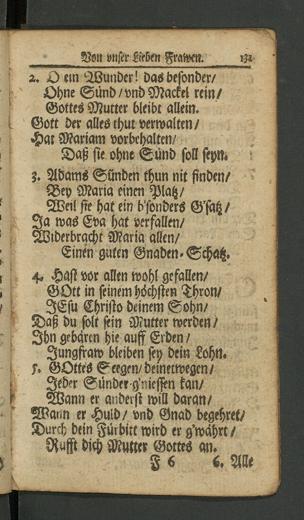 Von unser Lieben Frawen. 131
2. O ein Wunder! das besonder/
Ohne Sünd/ vnd Mackel rein/
Gottes Mutter bleibt allein.
Gott der alles thut verwalten/
Hat Mariam vorbehalten/
Daß sie ohne Sünd soll seyn.
3. Adams Sünden thun nit finden/
Bey Maria einen Platz/
Weil sie hat ein b'sonders G'satz/
Ja was Eva hat verfallen/
Widerbracht Maria allen/
Einen guten Gnaden-Schatz.
4. Hast vor allen wohl gefallen/
GOtt in seinem höchsten Thron/
JEsu Christo deinem Sohn/
Daß du solt sein Mutter werden/
Ihn gebären hie auff Erden/
Jungfraw bleiben sey dein Lohn.
5. GOttes Seegen/ deinetwegen/
Jeder Sünder g'niessen kan/
Wann er anderst will daran/
Wann er Huld/ vnd Gnad begehret/
Durch dein Fürbitt wird er g'währt/
Rufft dich Mutter Gottes an.
F 6 6. Alle